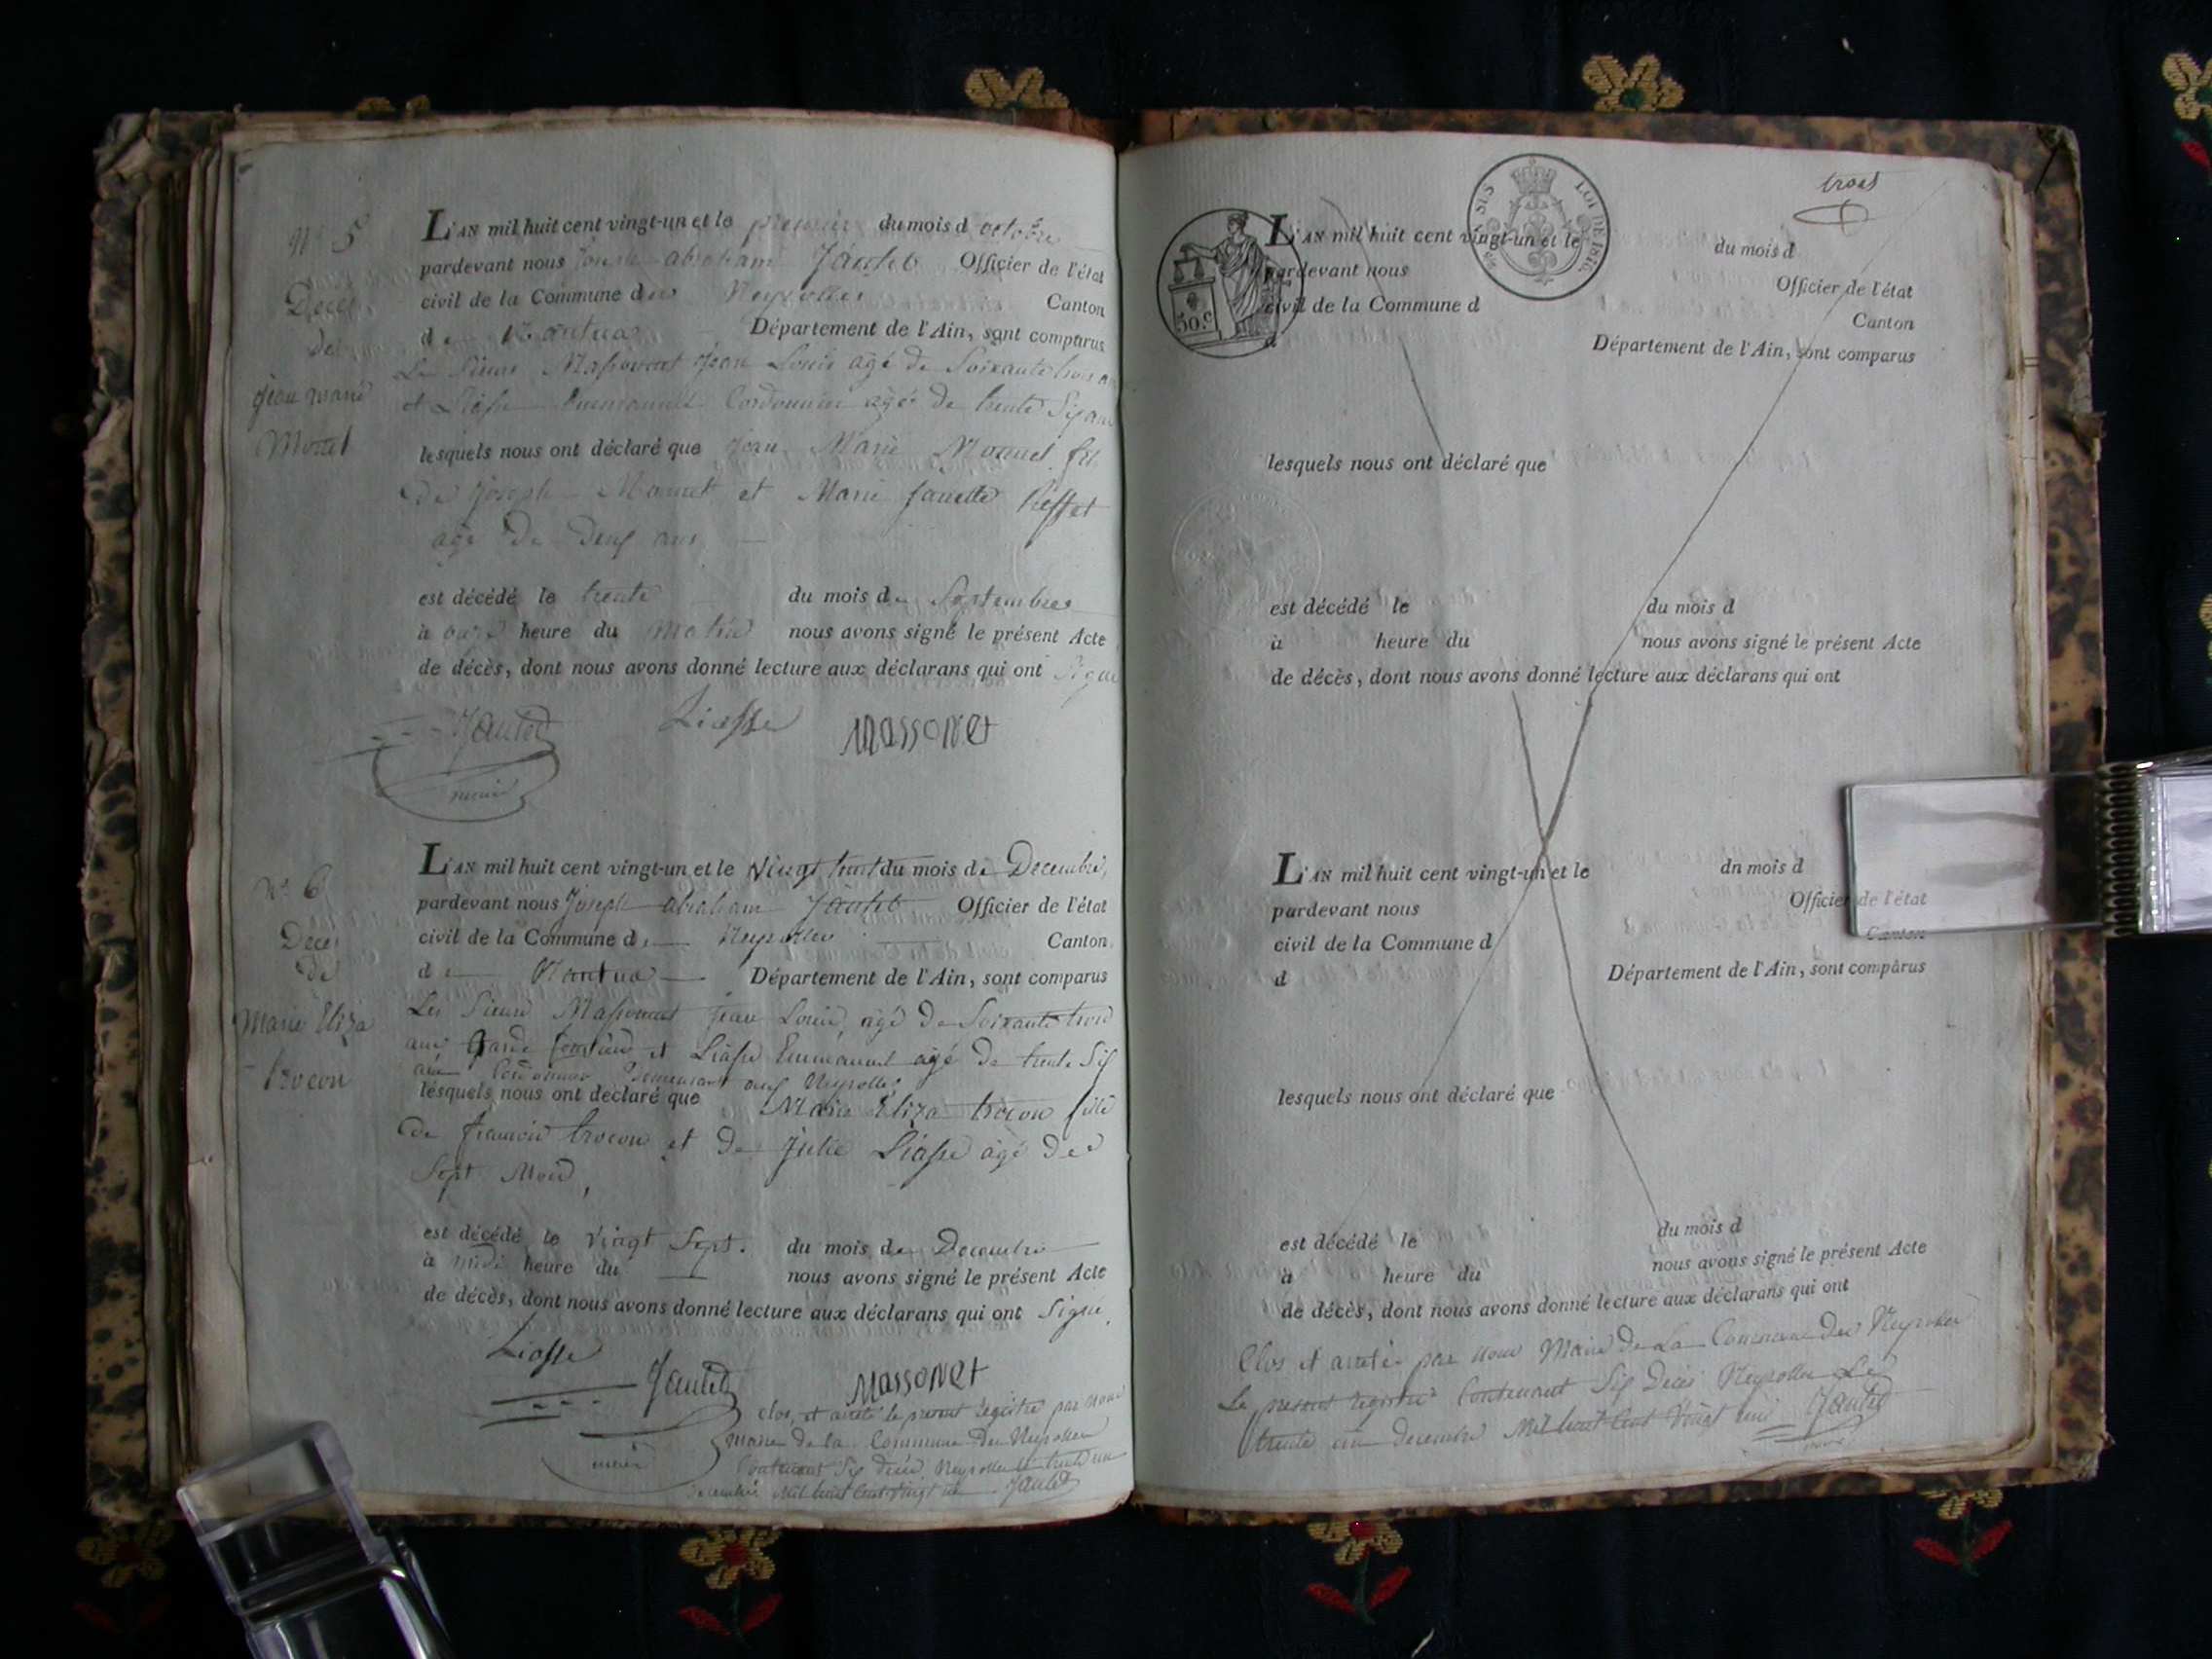 N° 5
Décès
de
jean marie
Monet
L'AN mil huit cent vingt-un et le premier du mois d octobre
pardevant nous Joseph abraham Jantet Officier de l'état
civil de la Commune des Neyrolles Canton
de Nantua Département de l'Ain, sont comparus
Les Sieurs Massonnet Jean Louis agé de Soixante trois
et Liasse Emmanuel Cordonnier agé de trente Six ans
lesquels nous ont déclaré que Jean Marie Monnet fils
de Joseph Monnet et Marie
agé de deux ans
est décédé le trente du mois de Septembre
à onze heure du matin nous avons signé le présent Acte
de décès, dont nous avons donné lecture aux déclarans qui ont Signé
Jantet Liasse MassoNet
maire
N° 6
Décès
de
Marie Eliza
trocon
L'AN mil huit cent vingt-un et le vingt huit du mois de Decembre,
pardevant nous Joseph abraham Jantet Officier de l'état
civil de la Commune d Neyrolles Canton
de Nantua Département de l'Ain, sont comparus
Les Sieurs Massonnet jean Louis, agé de Soixante trois
ans Garde forestier et Liasse Emmanuel agé de trente Six
ans Cordonnier Demeurant aux Neyrolles
lesquels nous ont déclaré que Marie Eliza trocon fille
de francois trocon et de Julie Liasse agé de
Sept Mois,
est décédé le vingt Sept. du mois de Decembre
à midi heure du nous avons signé le présent Acte
de décès, dont nous avons donné lecture aux déclarans qui ont Signé.
Liasse
Jantet MassoNet
maire
Clos, et arreté le present registre par nous
maire de la Commune des Neyrolles
Contenant Six Décès, Neyrolles le trente un
decembre mil huit Cent vingt un Jantet
trois
SIS LOI DE 1816.
50 c
L'AN mil huit cent vingt-un et le du mois d
pardevant nous Officier de l'état
civil de la Commune d Canton
d Département de l'Ain, sont comparus
lesquels nous ont déclaré que
est décédé le du mois d
à heure du nous avons signé le présent Acte
de décès, dont nous avons donné lecture aux déclarans qui ont
L'AN mil huit cent vingt-un et le dn mois d
pardevant nous Officier de l'état
civil de la Commune d Canton
d Département de l'Ain, sont comparus
lesquels nous ont déclaré que
est décédé le du mois d
à heure du nous avons signé le présent Acte
de décès, dont nous avons donné lecture aux déclarans qui ont
Clos et arreté par nous Maire de La Commune des Neyrolles
Le present registre Contenant Six Décès Neyrolles Le
trente un decembre Mil huit Cent Vingt un Jantet
maire